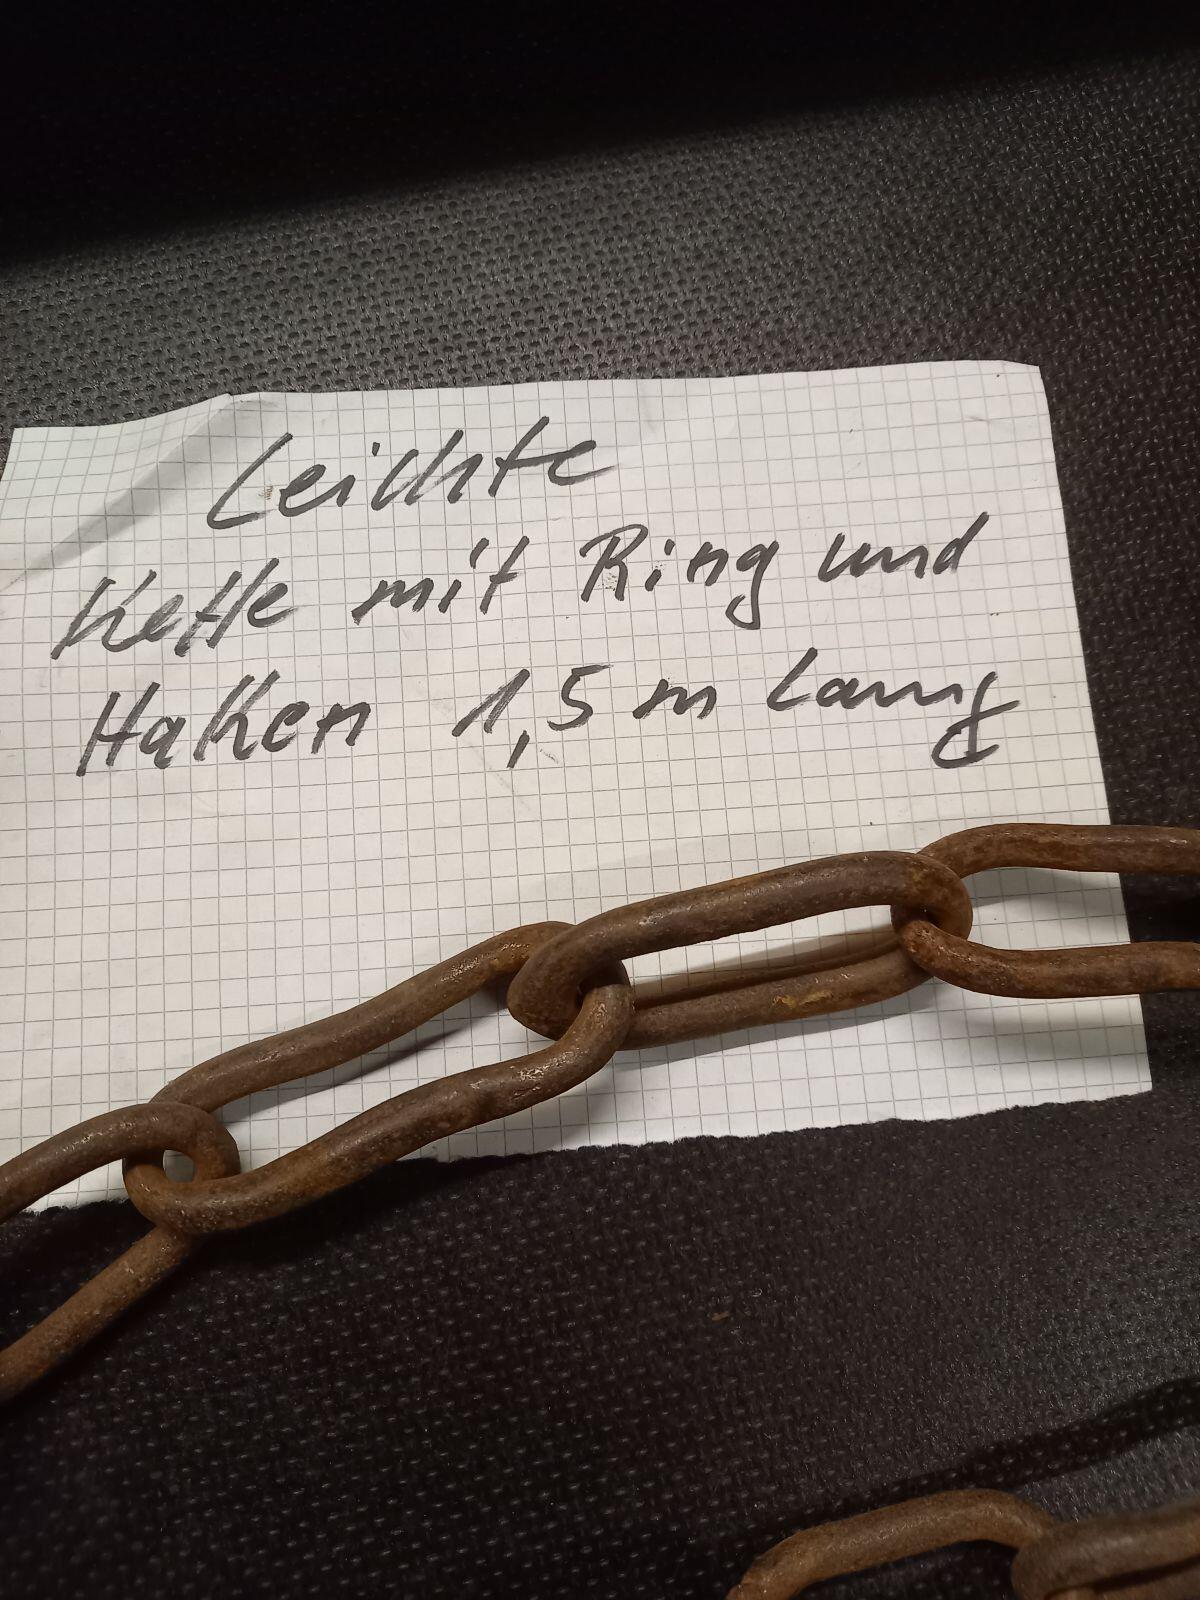 Leichte
Kette mit Ring und
Haken 1,5 m Lang